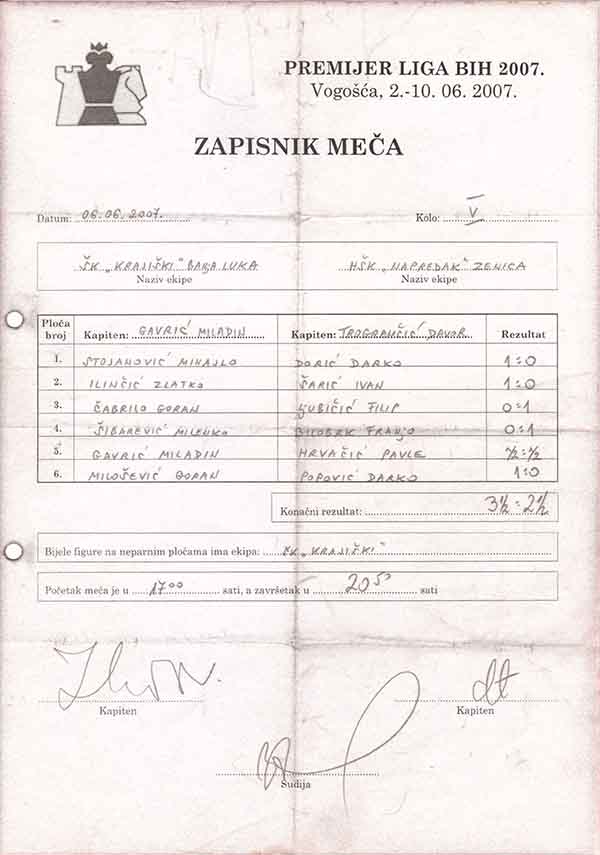 PREMIJER LIGA BIH 2007.
Vogošća, 2.-10. 06. 2007.
ZAPISNIK MEČA
Datum: 06.06.2007. Kolo: V
ŠK "KRAJIŠKI" BAŊA LUKA HŠK "NAPREDAK" ZENICA
Naziv ekipe Naziv ekipe
Ploča broj Kapiten: GAVRIĆ MILADIN Kapiten: TROGRANČIĆ DAVOR Rezultat
1. STOJANOVIĆ MIHAJLO DORIĆ DARKO 1:0
2. ILINČIĆ ZLATKO ŠARIĆ IVAN 1:0
3. ČABRILO GORAN LJUBIČIĆ FILIP 0:1
4. ŠIBAREVIĆ MILENKO BILOBRK FRANJO 0:1
5. GAVRIĆ MILADIN HRVAČIĆ PAVLE ½:½
6. MILOŠEVIĆ GORAN POPOVIĆ DARKO 1:0
Konačni rezultat: 3½:2½
Bijele figure na neparnim pločama ima ekipa: ŠK "KRAJIŠKI"
Početak meča je u 17 00 sati, a završetak u 20 50 sati
Kapiten Kapiten
Sudija